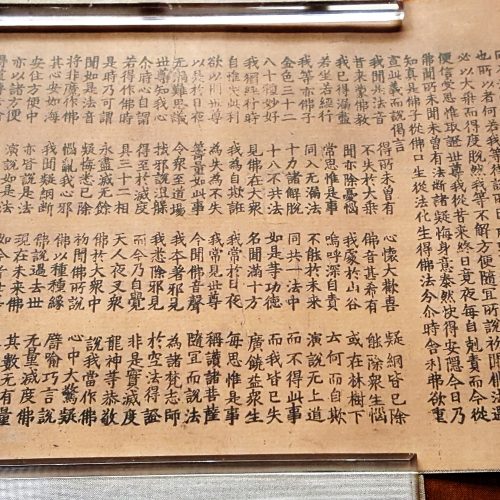 必以大乘而得度脫然我等不解方便隨宜所說初聞佛法遇
便信受思惟取證世尊我從昔來終日竟夜每自剋責而今從
佛聞所未聞未曾有法斷諸疑悔身意泰然快得安隱今日乃
知真是佛子從佛口生從法化生得佛法分尒時舍利弗欲重
宣此義而說偈言
我聞是法音 得所未曾有 心懷大歡喜 疑網皆已除
昔來蒙佛教 不失於大乘 佛音甚希有 能除眾生惱
我已得漏盡 聞亦除憂惱 我處於山谷 或在林樹下
若坐若經行 常思惟是事 嗚呼深自責 云何而自欺
我等亦佛子 同入无漏法 不能於未來 演說无上道
金色三十二 十力諸解脫 同共一法中 而不得此事
八十種妙好 十八不共法 如是等功德 而我皆已失
我獨經行時 見佛在大眾 名聞滿十方 廣饒益眾生
自惟失此利 我為自欺誑 我常於日夜 每思惟是事
欲以問世尊 為失為不失 我常見世尊 稱讚諸菩薩
以是於日夜 籌量如此事 今聞佛音聲 隨宜而說法
无漏難思議 令眾至道場 我本著邪見 為諸梵志師
世尊知我心 拔邪說涅槃 我悉除邪見 於空法得證
尒時心自謂 得至於滅度 而今乃自覺 非是實滅度
若得作佛時 具三十二相 天人夜叉眾 龍神等恭敬
是時乃可謂 永盡滅无餘 佛於大眾中 說我當作佛
聞如是法音 疑悔悉已除 初聞佛所說 心中大驚疑
將非魔作佛 惱亂我心耶 佛以種種緣 譬喻巧言說
其心安如海 我聞疑網斷 佛說過去世 无量滅度佛
安住方便中 亦皆說是法 現在未來佛 其數无有量
亦以諸方便 演說如是法 如今者世尊